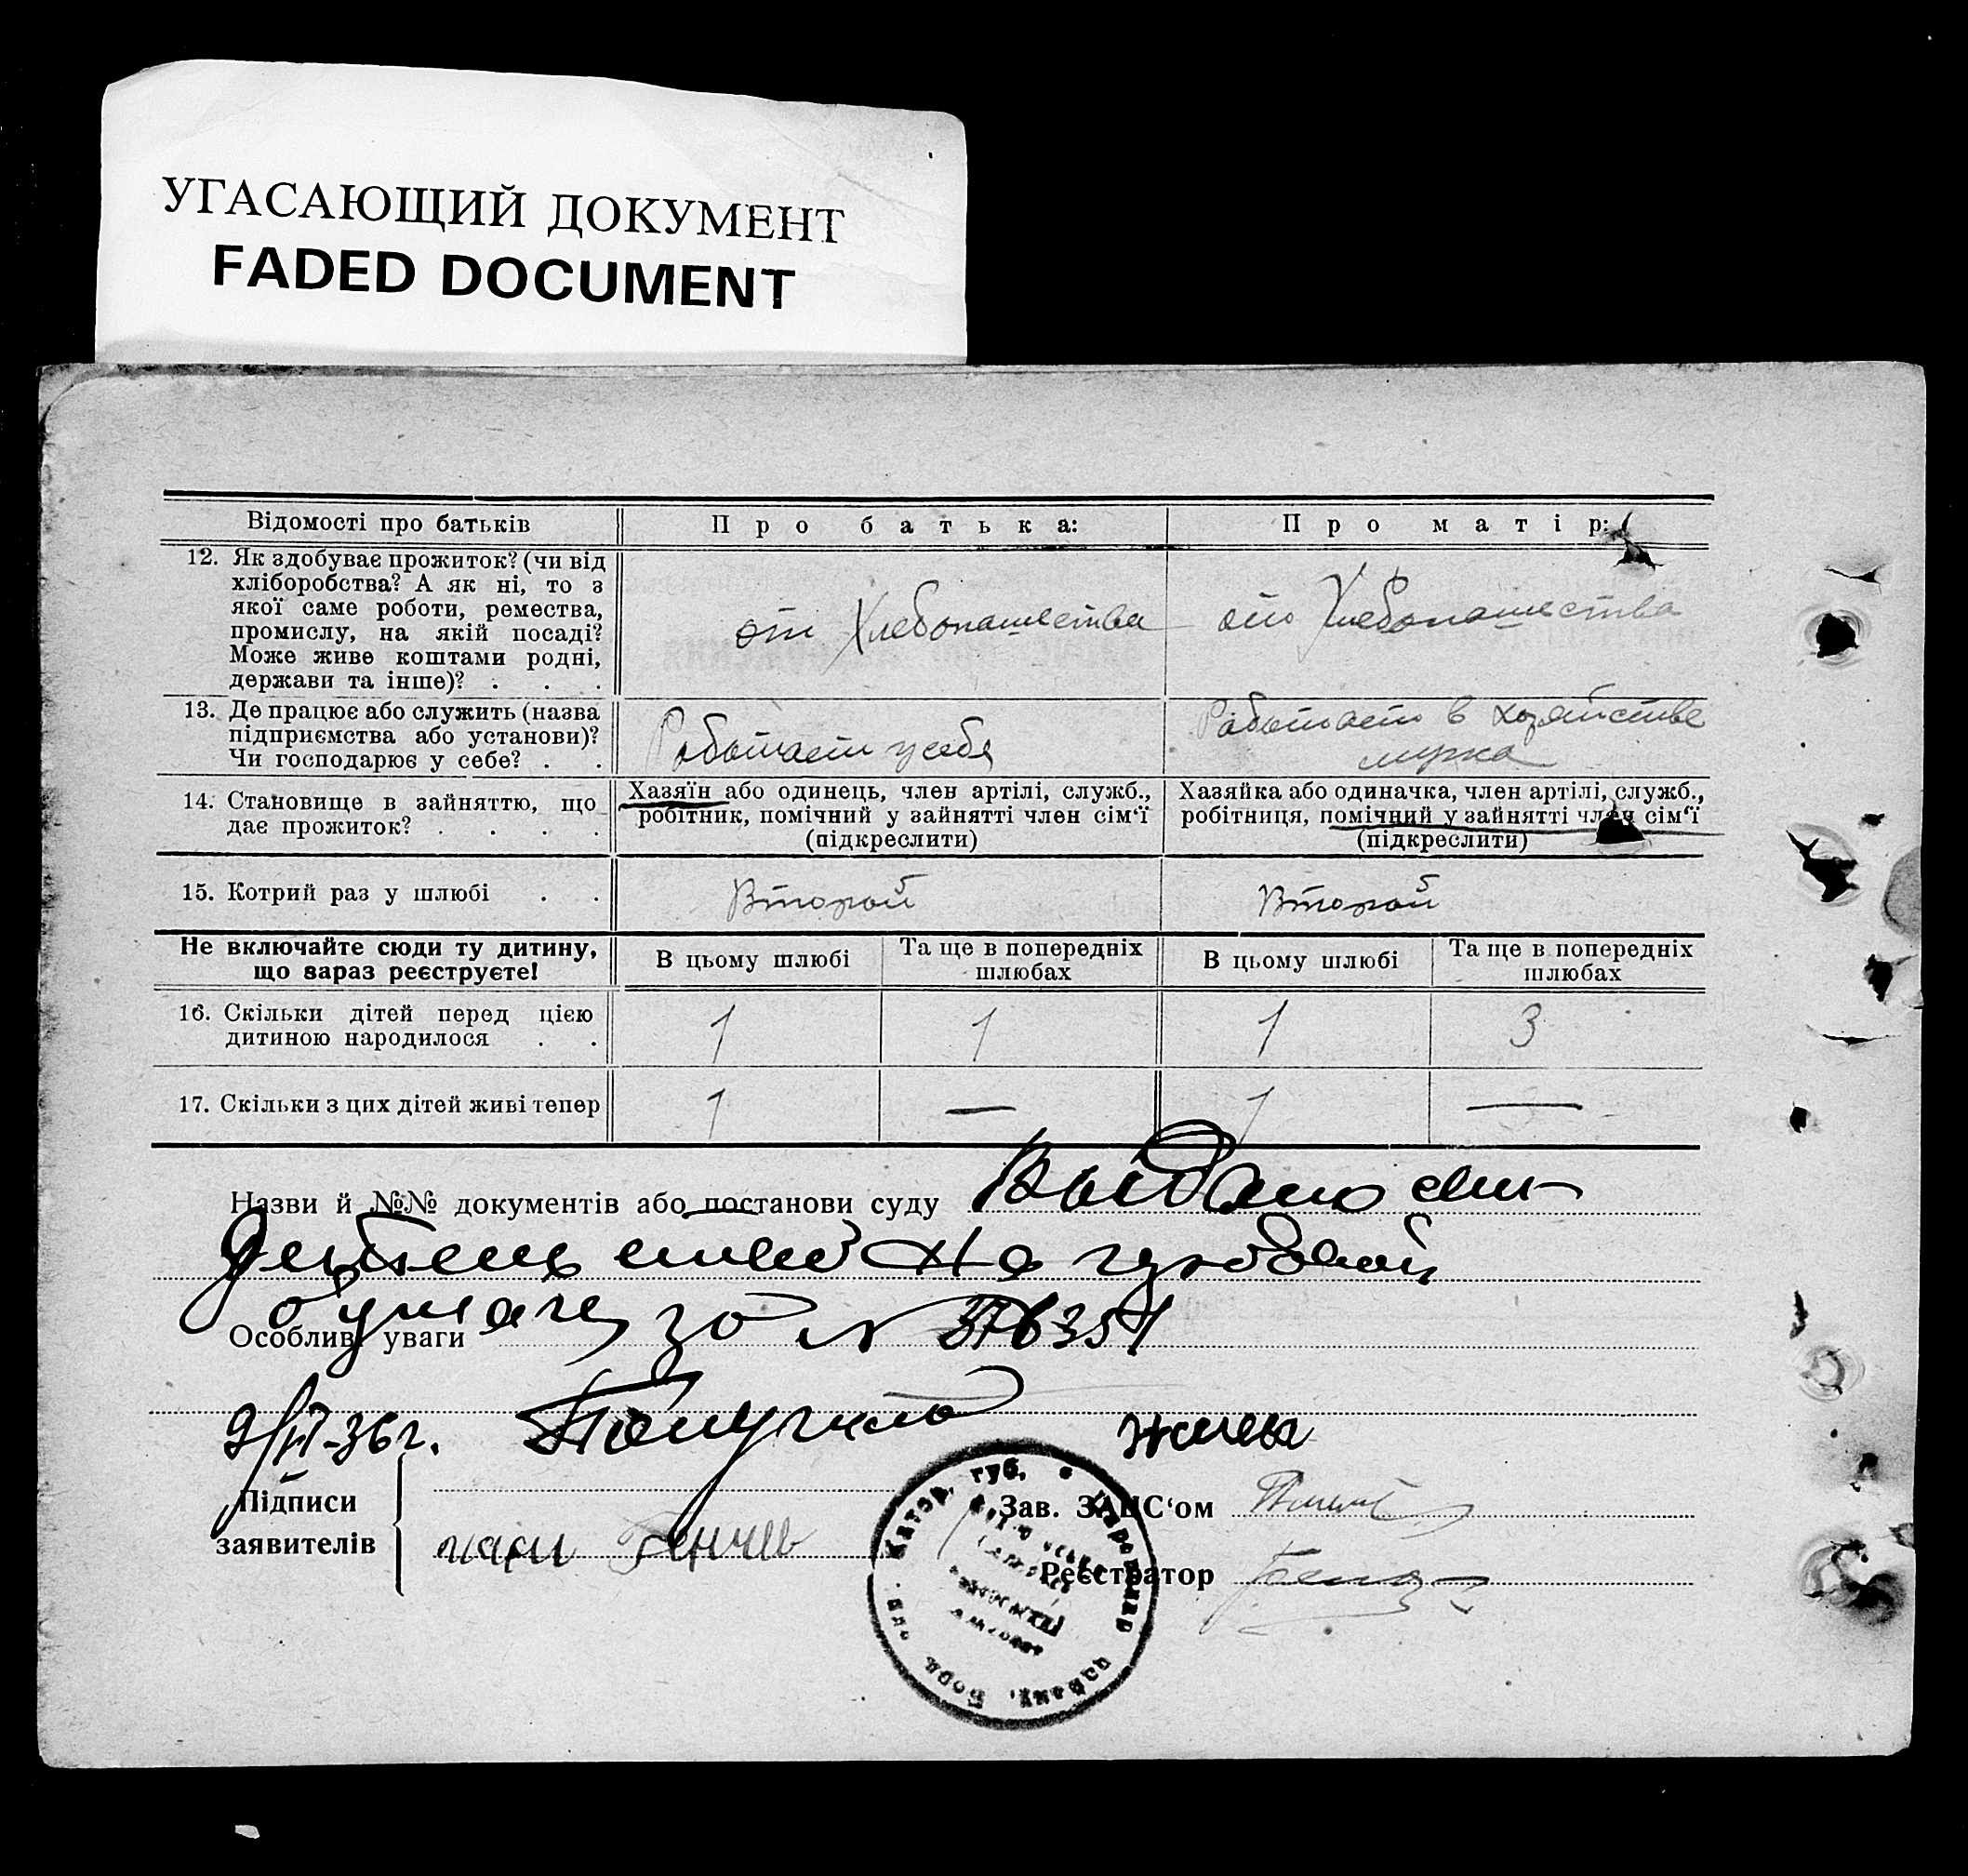 УГАСАЮЩИЙ ДОКУМЕНТ
FADED DOCUMENT
Відомості про батьків
Про батька:
Про матір:
12. Як здобуває прожиток? (чи від
хліборобства? А як ні, то з
якої саме роботи, ремества,
промислу, на якій посаді?
Може живе коштами родні,
держави та інше)? . . .
от Хлебопашества
от Хлебопашества
13. Де працює або служить (назва
підприємства або установи)?
Чи господарює у себе? . .
Работает у себя
Работает в хозяйстве
мужа
14. Становище в зайняттю, що
дає прожиток? . . . .
Хазяїн або одинець, член артілі, служб.,
робітник, помічний у зайнятті член сім‘ї
(підкреслити)
Хазяйка або одиначка, член артілі, служб.,
робітниця, помічний у зайнятті член сім‘ї
(підкреслити)
15. Котрий раз у шлюбі . .
Второй
Второй
Не включайте сюди ту дитину,
що зараз реєструєте!
В цьому шлюбі
Та ще в попередніх
шлюбах
В цьому шлюбі
Та ще в попередніх
шлюбах
16. Скільки дітей перед цією
дитиною народилося . .
1
1
1
3
17. Скільки з цих дітей живі тепер
1
—
1
—
Назви й №№ документів або постанови суду Выдано
на гербовой
бумаге за N 376351
Особливі уваги
9/VI-36 г.
Підписи
заявителів
губ.
Зав. ЗАГС‘ом
Реєстратор